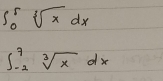 ∫₀⁵ ∛x dx
∫₋₂⁷ ∛x dx